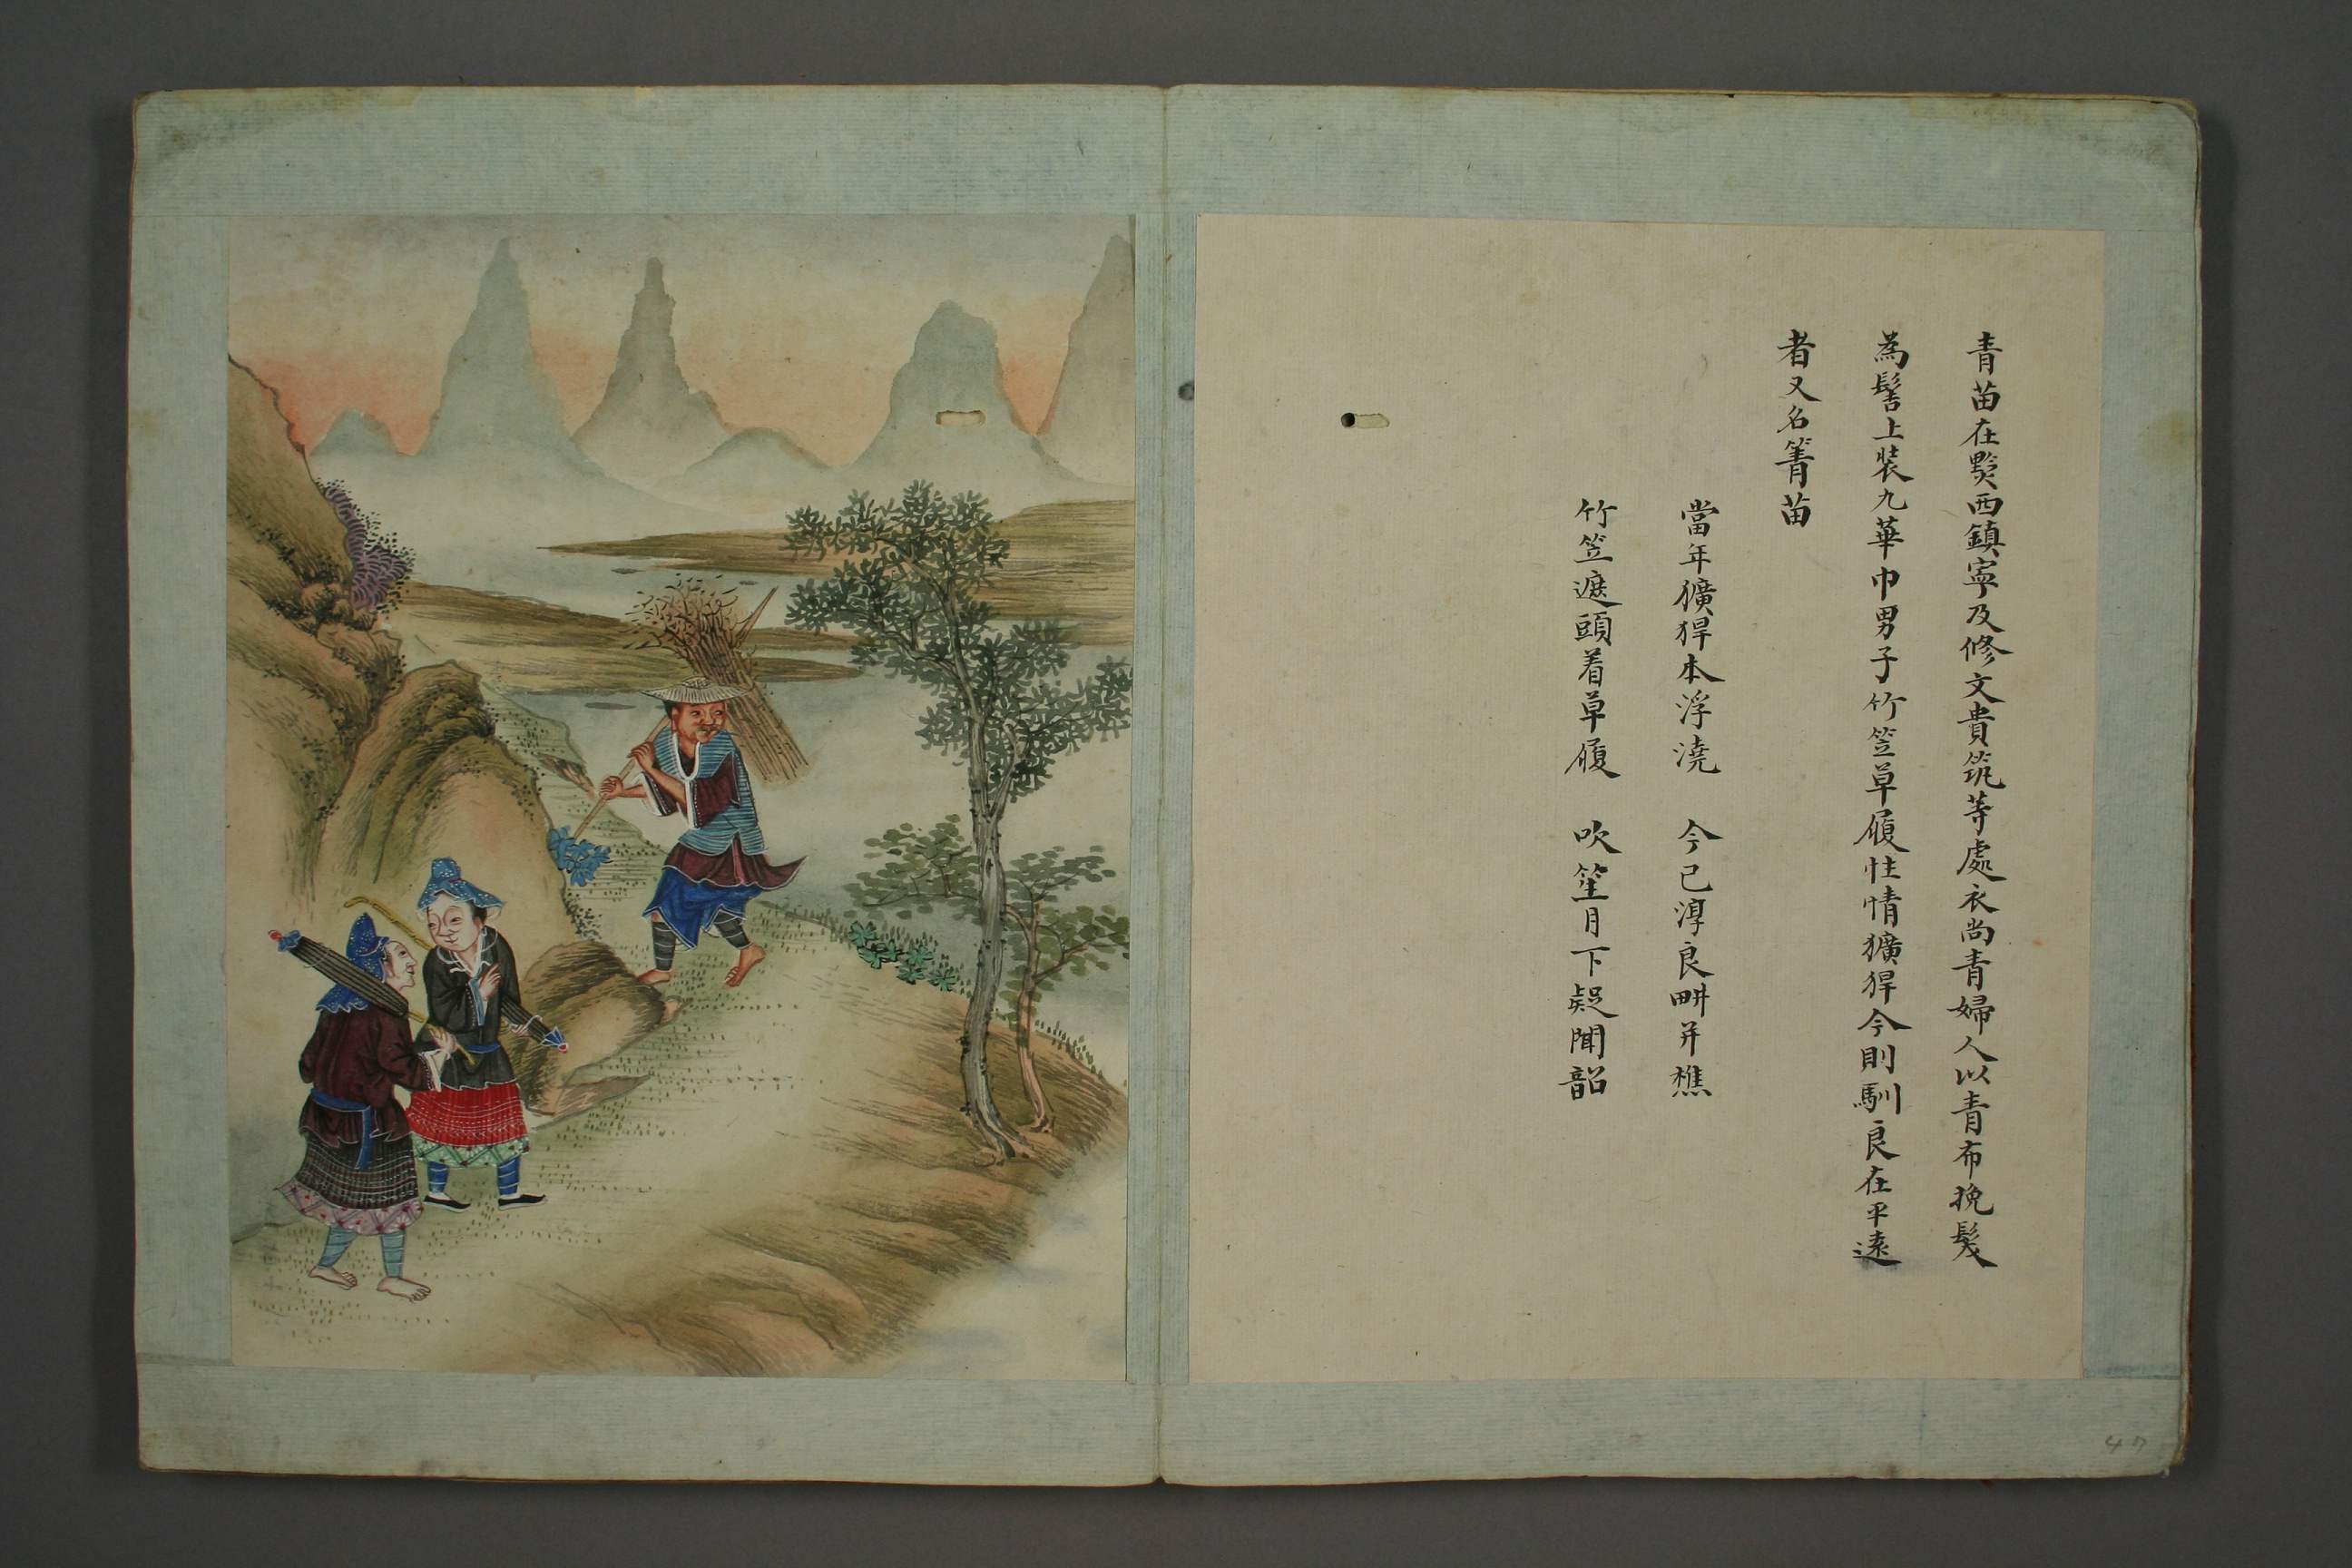 青苗在黔西鎮寧及修文貴筑等處衣尚青婦人以青布挽髮
為髻上裝九華巾男子竹笠草履性情獷猂今則馴良在平遠
者又名箐苗
當年獷猂本浮澆 今已淳良畊并樵
竹笠遮頭着草履 吹笙月下疑聞韶
47